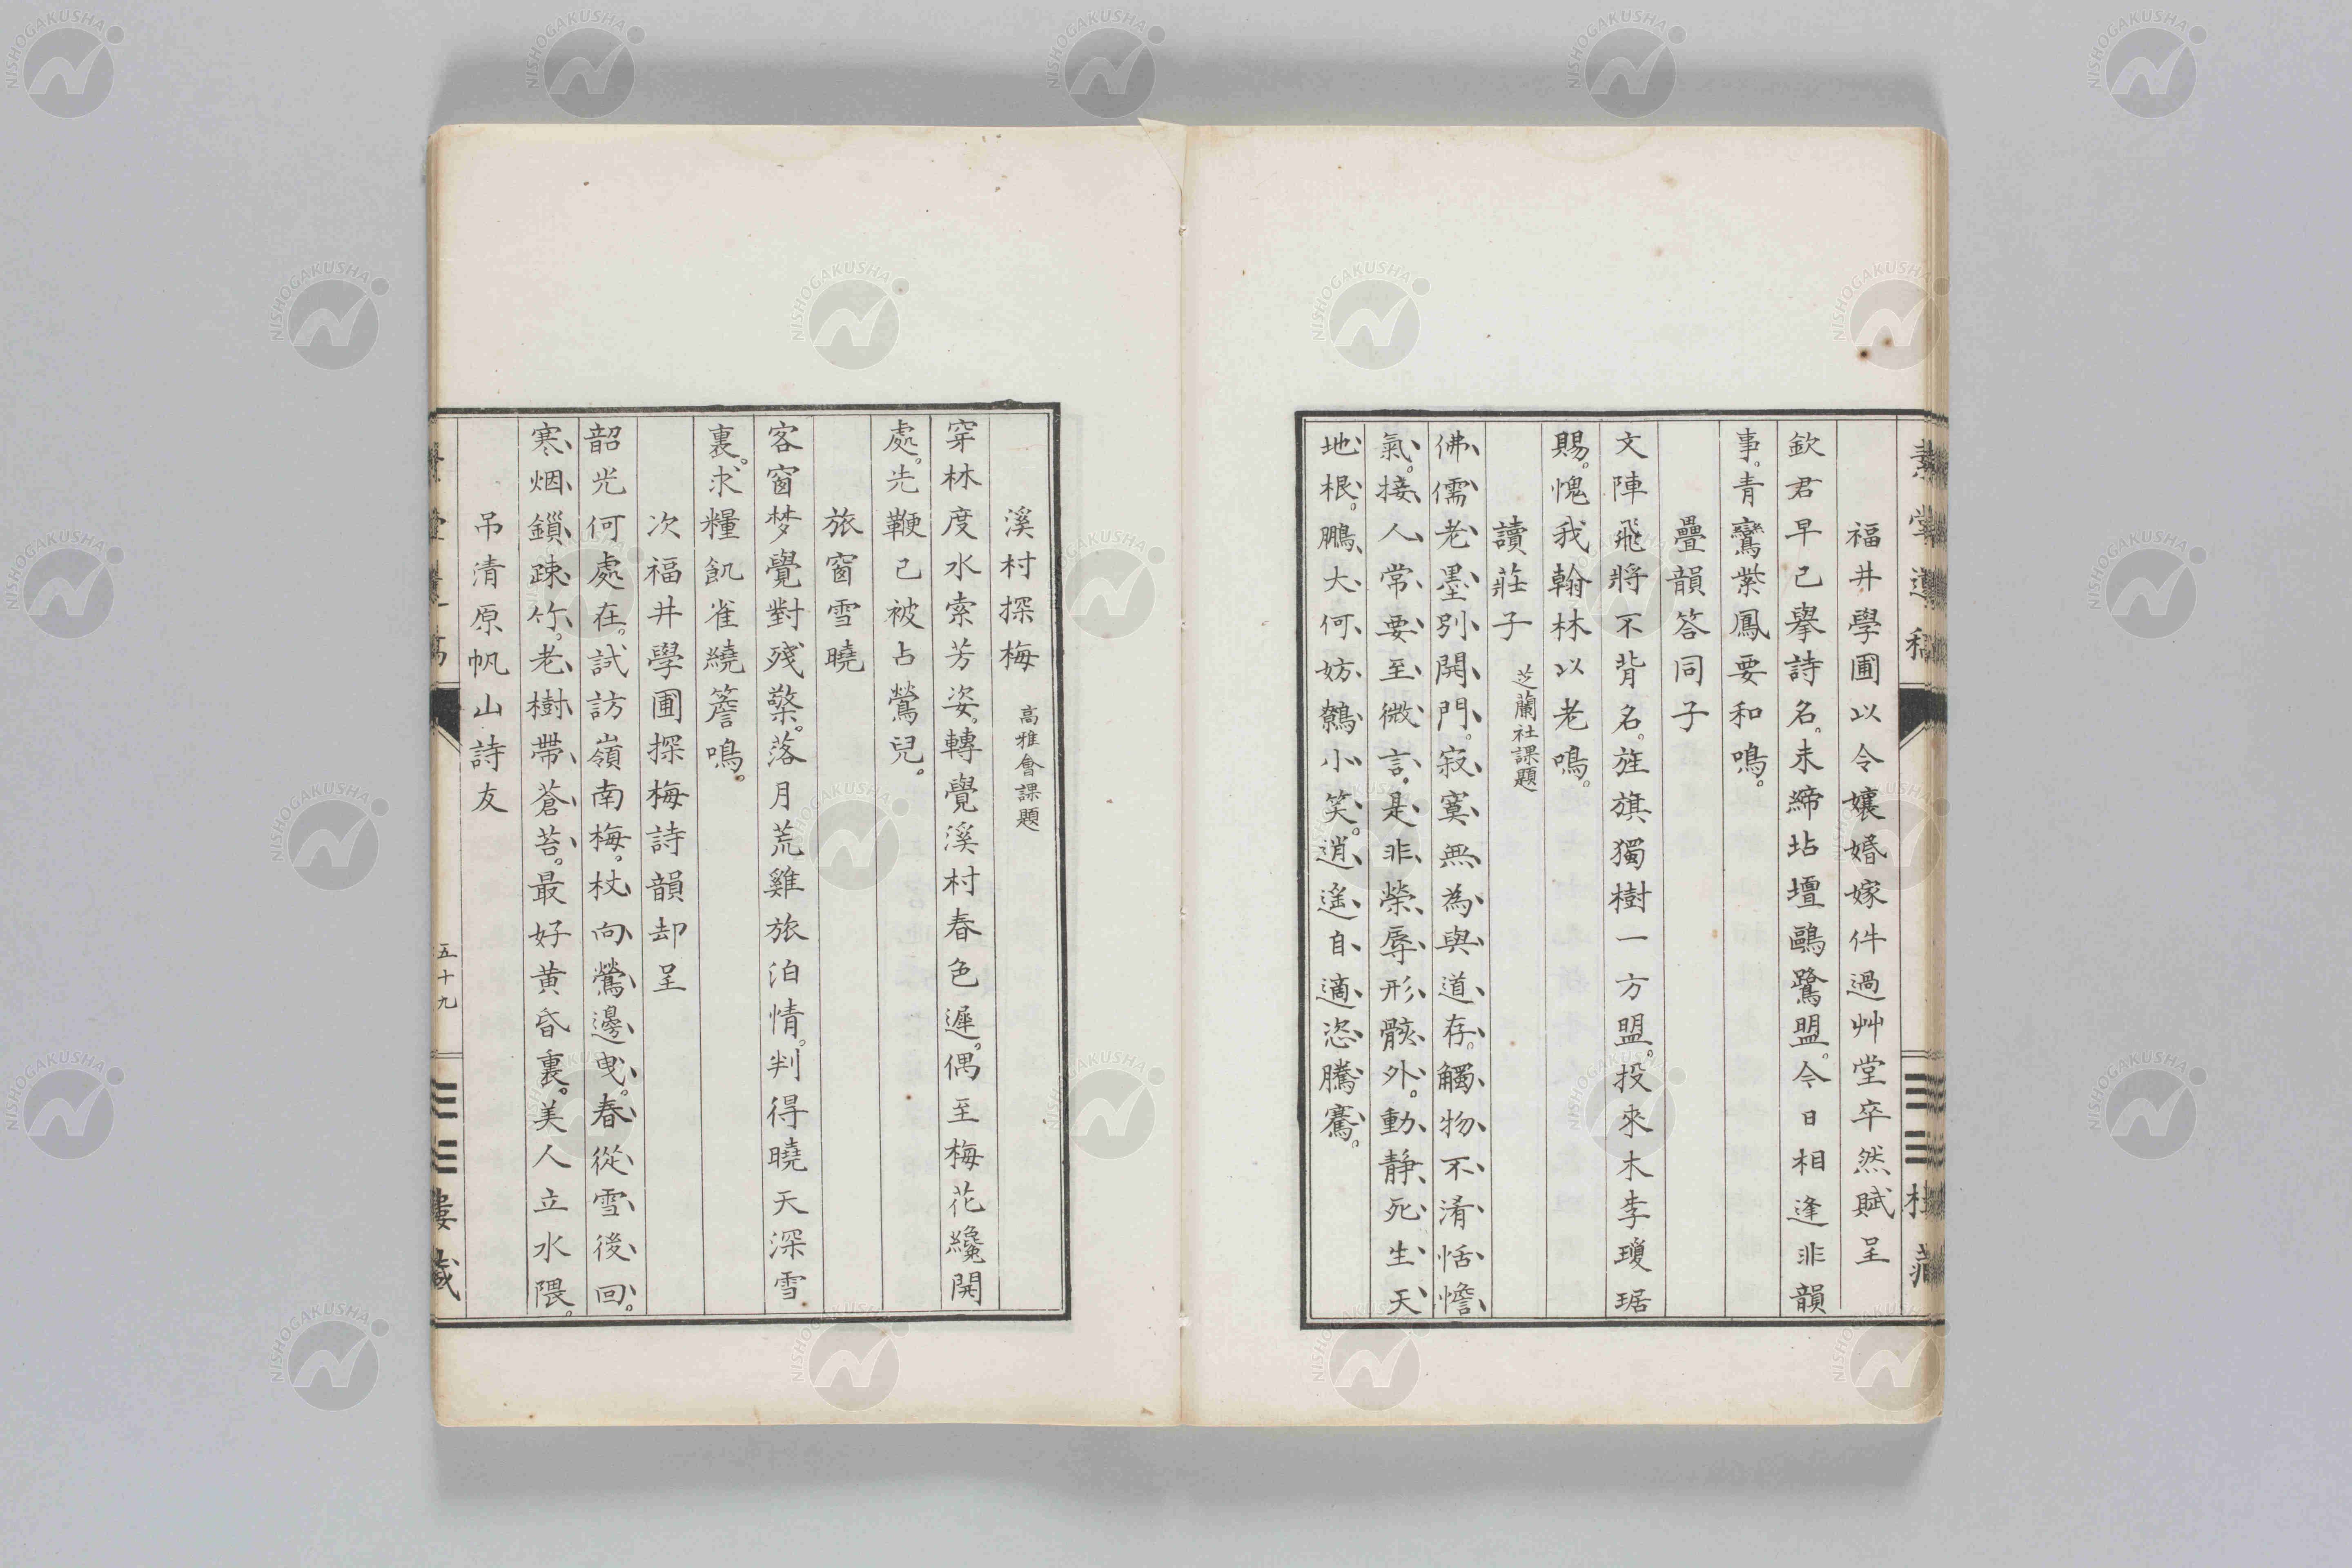 福井學圃以令孃婚嫁件過艸堂卒然賦呈
欽君早已擧詩名。未締坫壇鷗鷺盟。今日相逢非韻
事。青鸞紫鳳要和鳴。
疊韻答同子
文陣飛將不背名。旌旗獨樹一方盟。投來木李瓊琚
賜。愧我翰林以老鳴。
讀莊子 芝蘭社課題
佛、儒、老、墨、別、開、門。寂、寞、無、為、與、道、存。觸、物、不、淆、恬、憺、
氣。接、人、常、要、至、微、言。是、非、榮、辱、形、骸、外。動、靜、死、生、天、
地、根。鵬、大、何、妨、鷯、小、笑。逍、遙、自、適、恣、騰、騫。
溪村探梅 高雅會課題
穿林度水索芳姿。轉覺溪村春色遲。偶至梅花纔開
處。先鞭已被占鶯兒。
旅窗雪曉
客窗梦覺對殘檠。落月荒雞旅泊情。判得曉天深雪
裏。求糧飢雀繞簷鳴。
次福井學圃探梅詩韻却呈
韶光何處在。試訪嶺南梅。杖、向、鶯、邊、曳。春、從、雪、後、回。
寒、烟、鎖、疎、竹。老、樹、帶、蒼、苔。最好黄昏裏。美人立水隈。
吊清原帆山詩友
五十九
NISHOGAKUSHA